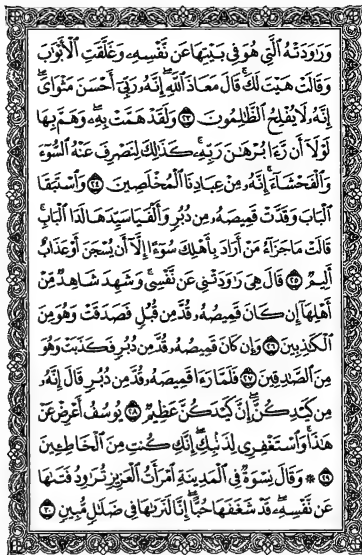 وَرَٰوَدَتْهُ ٱلَّتِى هُوَ فِى بَيْتِهَا عَن نَّفْسِهِۦ وَغَلَّقَتِ ٱلْأَبْوَٰبَ
وَقَالَتْ هَيْتَ لَكَ ۚ قَالَ مَعَاذَ ٱللَّهِ ۖ إِنَّهُۥ رَبِّىٓ أَحْسَنَ مَثْوَاىَ ۖ
إِنَّهُۥ لَا يُفْلِحُ ٱلظَّٰلِمُونَ ٢٣ وَلَقَدْ هَمَّتْ بِهِۦ ۖ وَهَمَّ بِهَا
لَوْلَآ أَن رَّءَا بُرْهَٰنَ رَبِّهِۦ ۚ كَذَٰلِكَ لِنَصْرِفَ عَنْهُ ٱلسُّوٓءَ
وَٱلْفَحْشَآءَ ۚ إِنَّهُۥ مِنْ عِبَادِنَا ٱلْمُخْلَصِينَ ٢٤ وَٱسْتَبَقَا
ٱلْبَابَ وَقَدَّتْ قَمِيصَهُۥ مِن دُبُرٍ وَأَلْفَيَا سَيِّدَهَا لَدَا ٱلْبَابِ ۚ
قَالَتْ مَا جَزَآءُ مَنْ أَرَادَ بِأَهْلِكَ سُوٓءًا إِلَّآ أَن يُسْجَنَ أَوْ عَذَابٌ
أَلِيمٌ ٢٥ قَالَ هِىَ رَٰوَدَتْنِى عَن نَّفْسِى ۚ وَشَهِدَ شَاهِدٌ مِّنْ
أَهْلِهَآ إِن كَانَ قَمِيصُهُۥ قُدَّ مِن قُبُلٍ فَصَدَقَتْ وَهُوَ مِنَ
ٱلْكَٰذِبِينَ ٢٦ وَإِن كَانَ قَمِيصُهُۥ قُدَّ مِن دُبُرٍ فَكَذَبَتْ وَهُوَ
مِنَ ٱلصَّٰدِقِينَ ٢٧ فَلَمَّا رَءَا قَمِيصَهُۥ قُدَّ مِن دُبُرٍ قَالَ إِنَّهُۥ
مِن كَيْدِكُنَّ ۖ إِنَّ كَيْدَكُنَّ عَظِيمٌ ٢٨ يُوسُفُ أَعْرِضْ عَنْ
هَٰذَا ۚ وَٱسْتَغْفِرِى لِذَنۢبِكِ ۖ إِنَّكِ كُنتِ مِنَ ٱلْخَاطِـِٔينَ
٢٩ ۞ وَقَالَ نِسْوَةٌ فِى ٱلْمَدِينَةِ ٱمْرَأَتُ ٱلْعَزِيزِ تُرَٰوِدُ فَتَىٰهَا
عَن نَّفْسِهِۦ ۖ قَدْ شَغَفَهَا حُبًّا ۖ إِنَّا لَنَرَىٰهَا فِى ضَلَٰلٍ مُّبِينٍ ٣٠